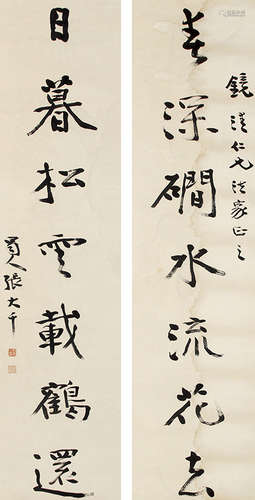 鏡清仁兄法家正之
春深磵水流花去
日暮松雲載鶴還
蜀人張大千